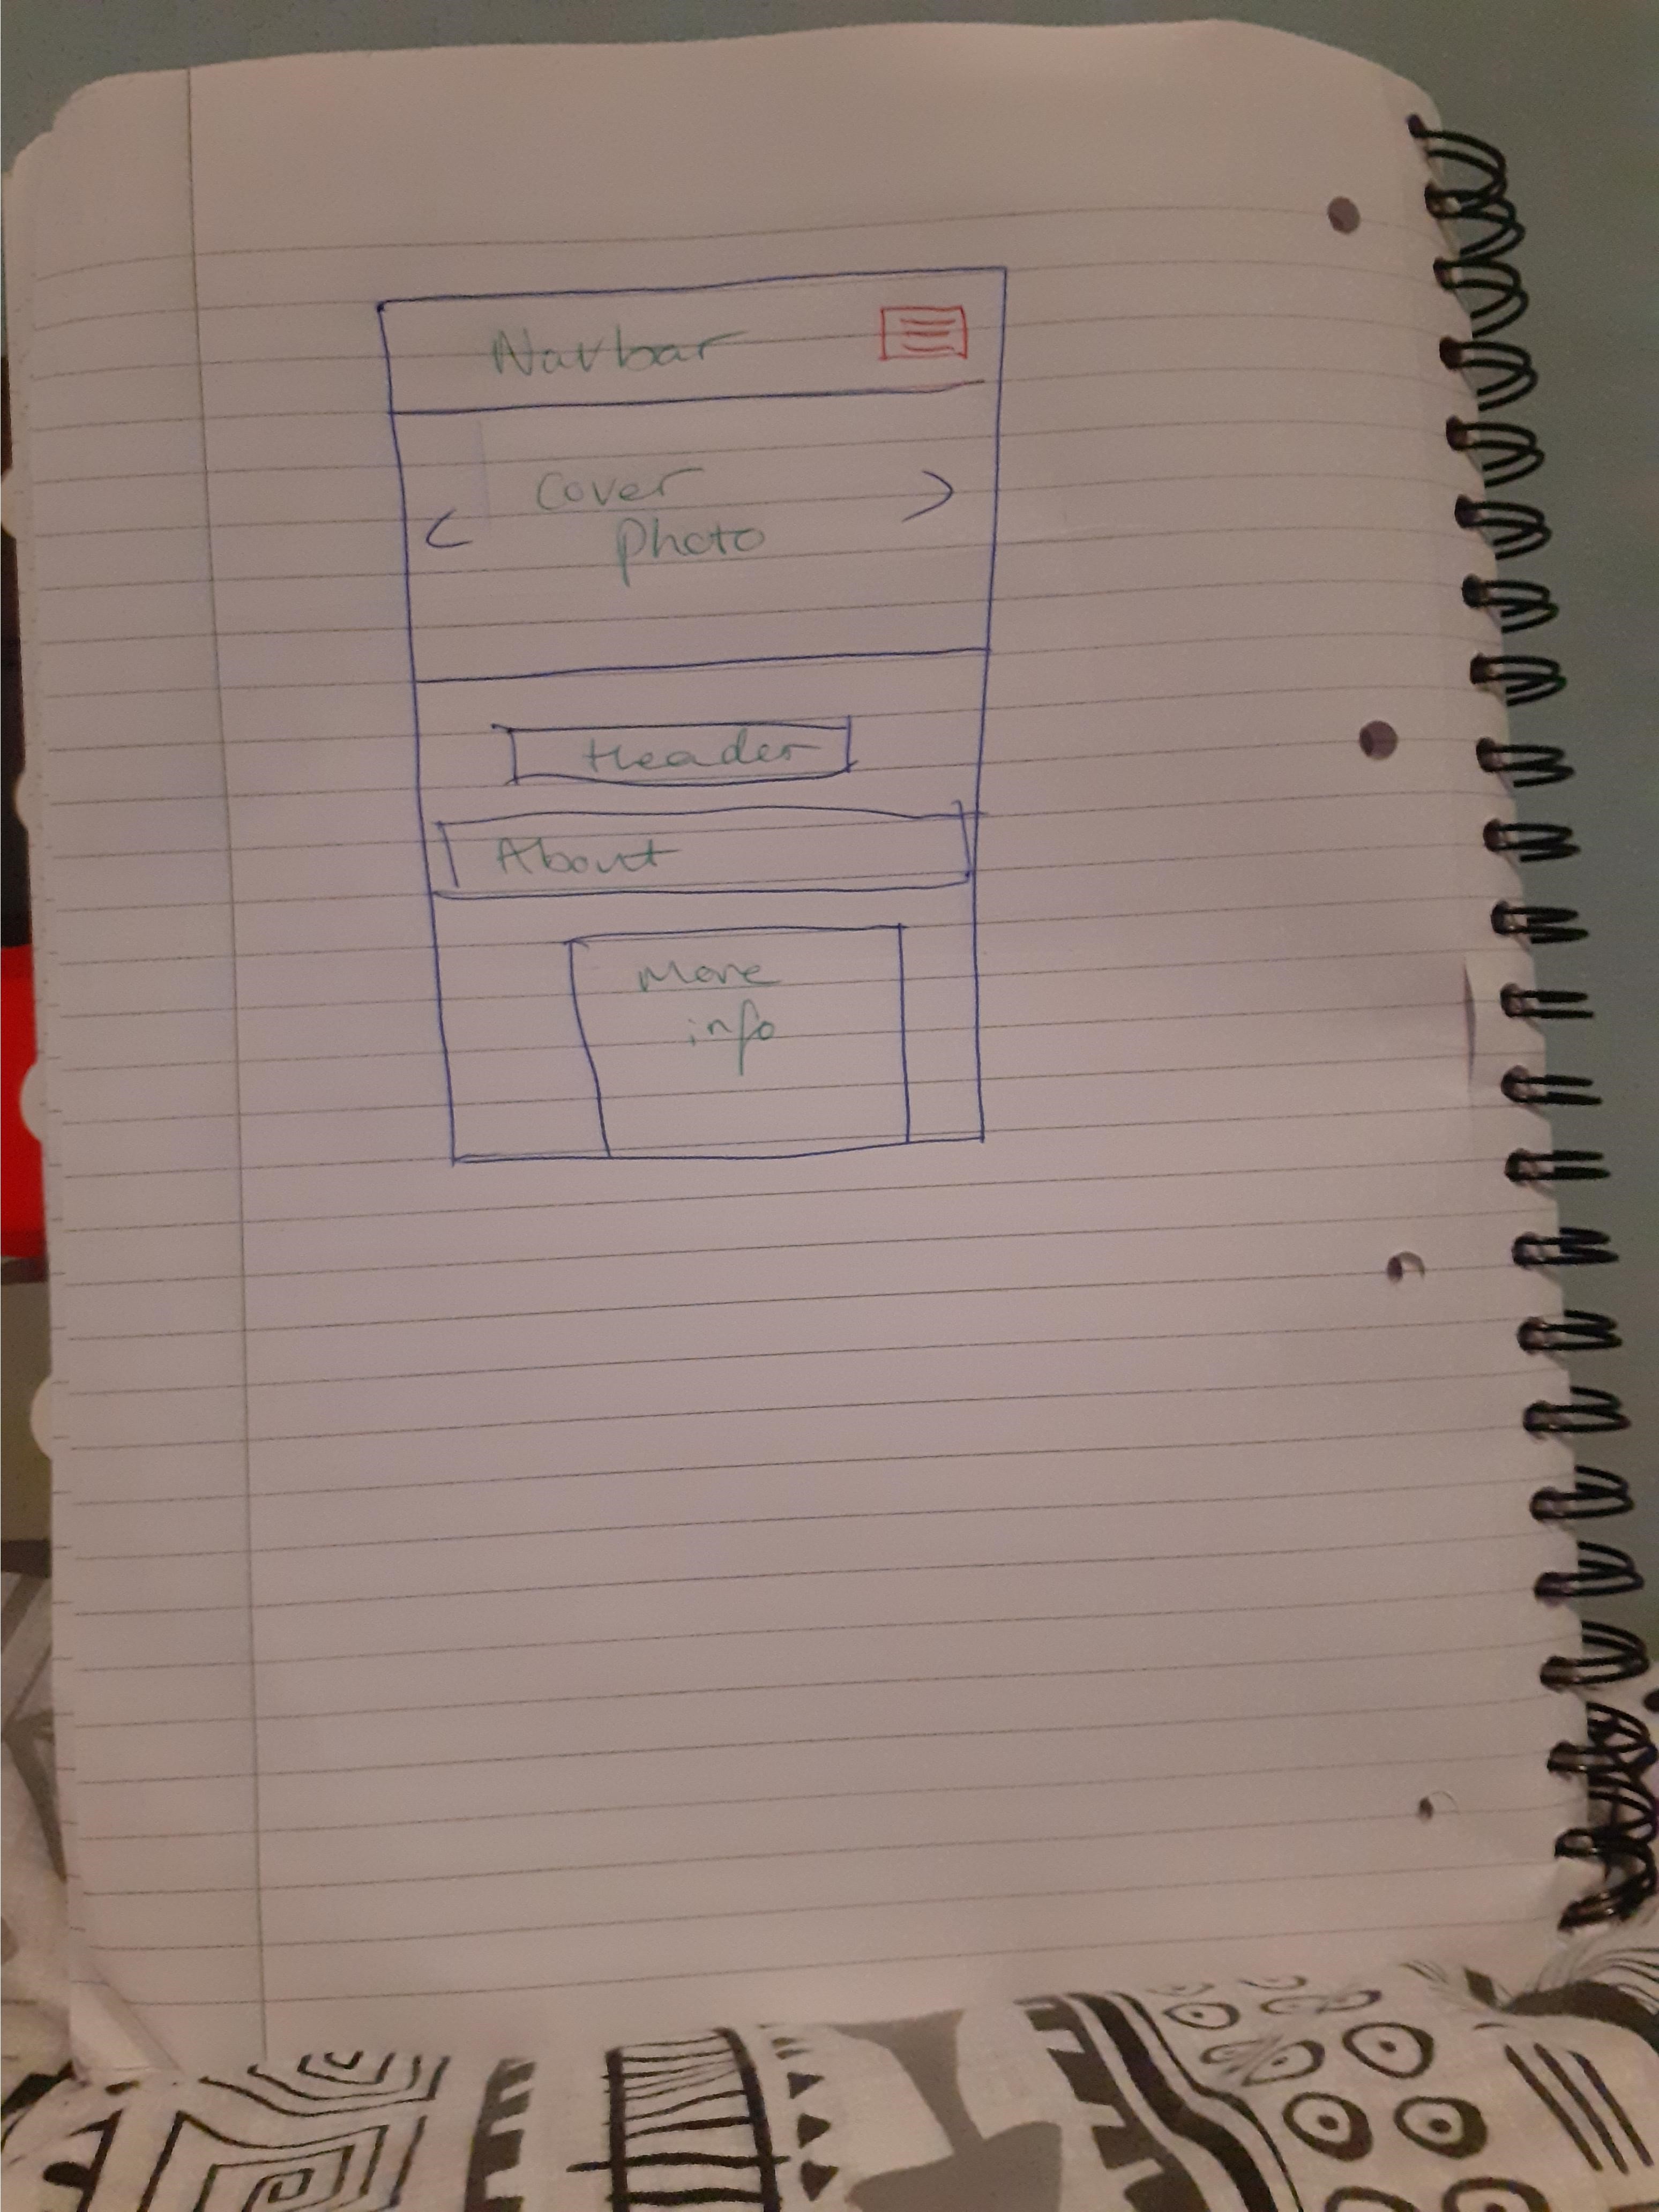 Navbar
Cover
Photo
Header
About
More
info